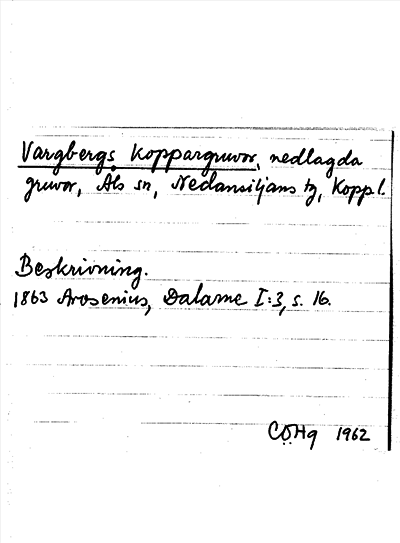 Vargbergs Koppargruvor, nedlagda
gruvor, Als sn, Nedansiljans tg, Koppl.
Beskrivning.
1863 Arosenius, Dalarne I:3, s. 16.
CÖHg 1962